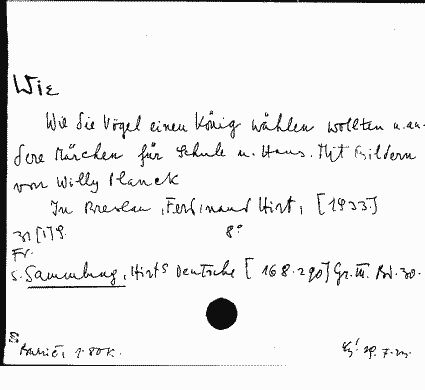 Wie
Wie die Vögel einen König wählen wollten u. an-
dere Märchen für Schule u. Haus. Mit Bildern
von Willy Planck
In Breslau, Ferdinand Hirt, [1933]
31 [1] S. 8°
Fr.
s. Sammlung, Hirts Deutsche [168.290] Gr. III. Bd. 30.
1.80 K. 29.7.